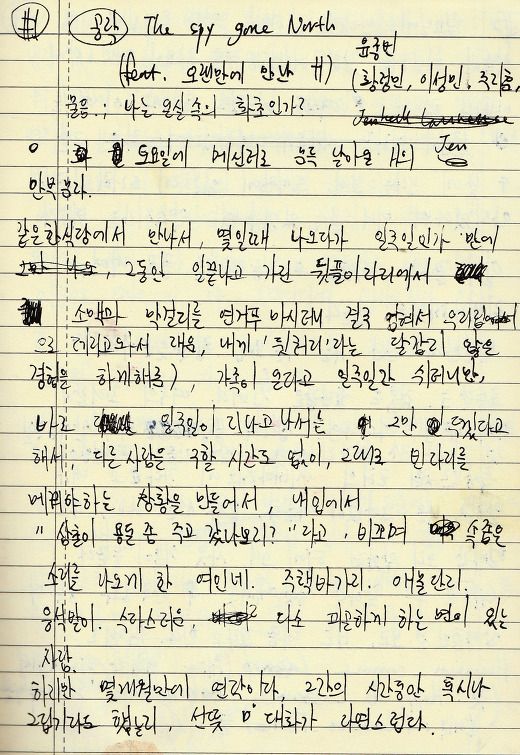 # 공작 The spy gone North
(feat. 오랜만에 만난 H) 윤종빈
(황정민, 이성민, 주지훈,
물음 : 나는 온실 속의 화초인가?
Jen
토요일에 메신저로 문득 날아온 H의
안부문자.
같은 한식당에서 만나서, 몇일째 나오다가 일주일인가 만에
그동안 일끝나고 가진 뒷풀이자리에서
소맥과 막걸리를 연거푸 마시더니 결국 업혀서 우리집
으로 데리고와서 재운, 내게 '뒷처리'라는 달갑지 않은
경험을 하게해줌), 가족이 온다고 일주일간 쉬더니만,
바로 일주일이 지나고 나서는 그만 두겠다고
해서, 다른 사람을 구할 시간도 없이, 그대로 빈자리를
메꿔야하는 상황을 만들어서, 내입에서
"삼촌이 용돈 좀 주고 갔나보지?"라고, 비꼬며 속좁은
소리를 나오게 한 여인네. 주책바가지. 애물단지.
응석받이. 수다스러운, 다소 피곤하게 하는 면이 있는
사람.
하지만 몇개월만에 연락이다, 그간의 시간동안 혹시나
그립기라도 했눈지, 선뜻 대화가 자연스럽다.